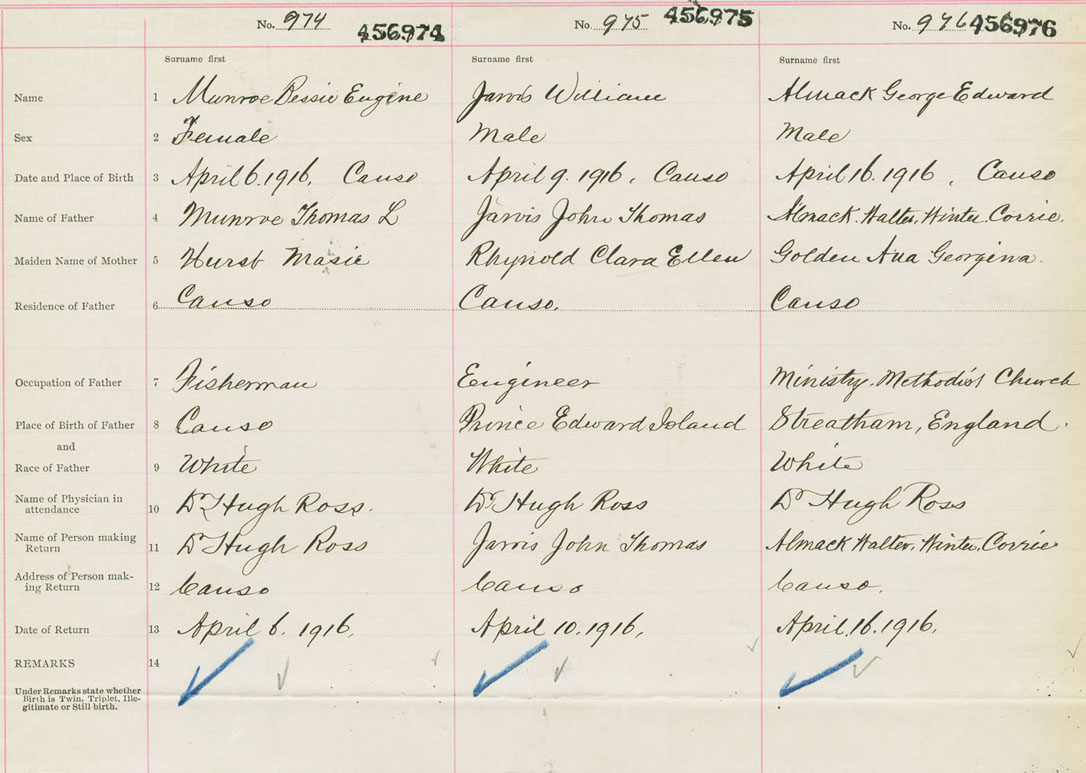 No. 974 456974 No. 975 456975 No. 976 456976
Surname first Surname first Surname first
Name 1 Munroe Bessie Eugine Jarvis William Almack George Edward
Sex 2 Female Male Male
Date and Place of Birth 3 April 6. 1916, Canso April 9. 1916, Canso April 16. 1916, Canso
Name of Father 4 Munroe Thomas L Jarvis John Thomas Almack. Walter. Winter. Corrie.
Maiden Name of Mother 5 Hurst Masie Rhynold Clara Ellen Golden Ana Georgina.
Residence of Father 6 Canso Canso. Canso
Occupation of Father 7 Fisherman Engineer Ministry. Methodist Church
Place of Birth of Father 8 Canso Prince Edward Island Streatham, England.
and
Race of Father 9 White White White
Name of Physician in
attendance 10 Dr Hugh Ross. Dr Hugh Ross Dr Hugh Ross
Name of Person making
Return 11 Dr Hugh Ross Jarvis John Thomas Almack Walter. Winter. Corrie
Address of Person mak-
ing Return 12 Canso Canso Canso.
Date of Return 13 April 6. 1916, April 10. 1916, April, 16. 1916,
REMARKS 14
Under Remarks state whether
Birth is Twin, Triplet, Ille-
gitimate or Still birth.